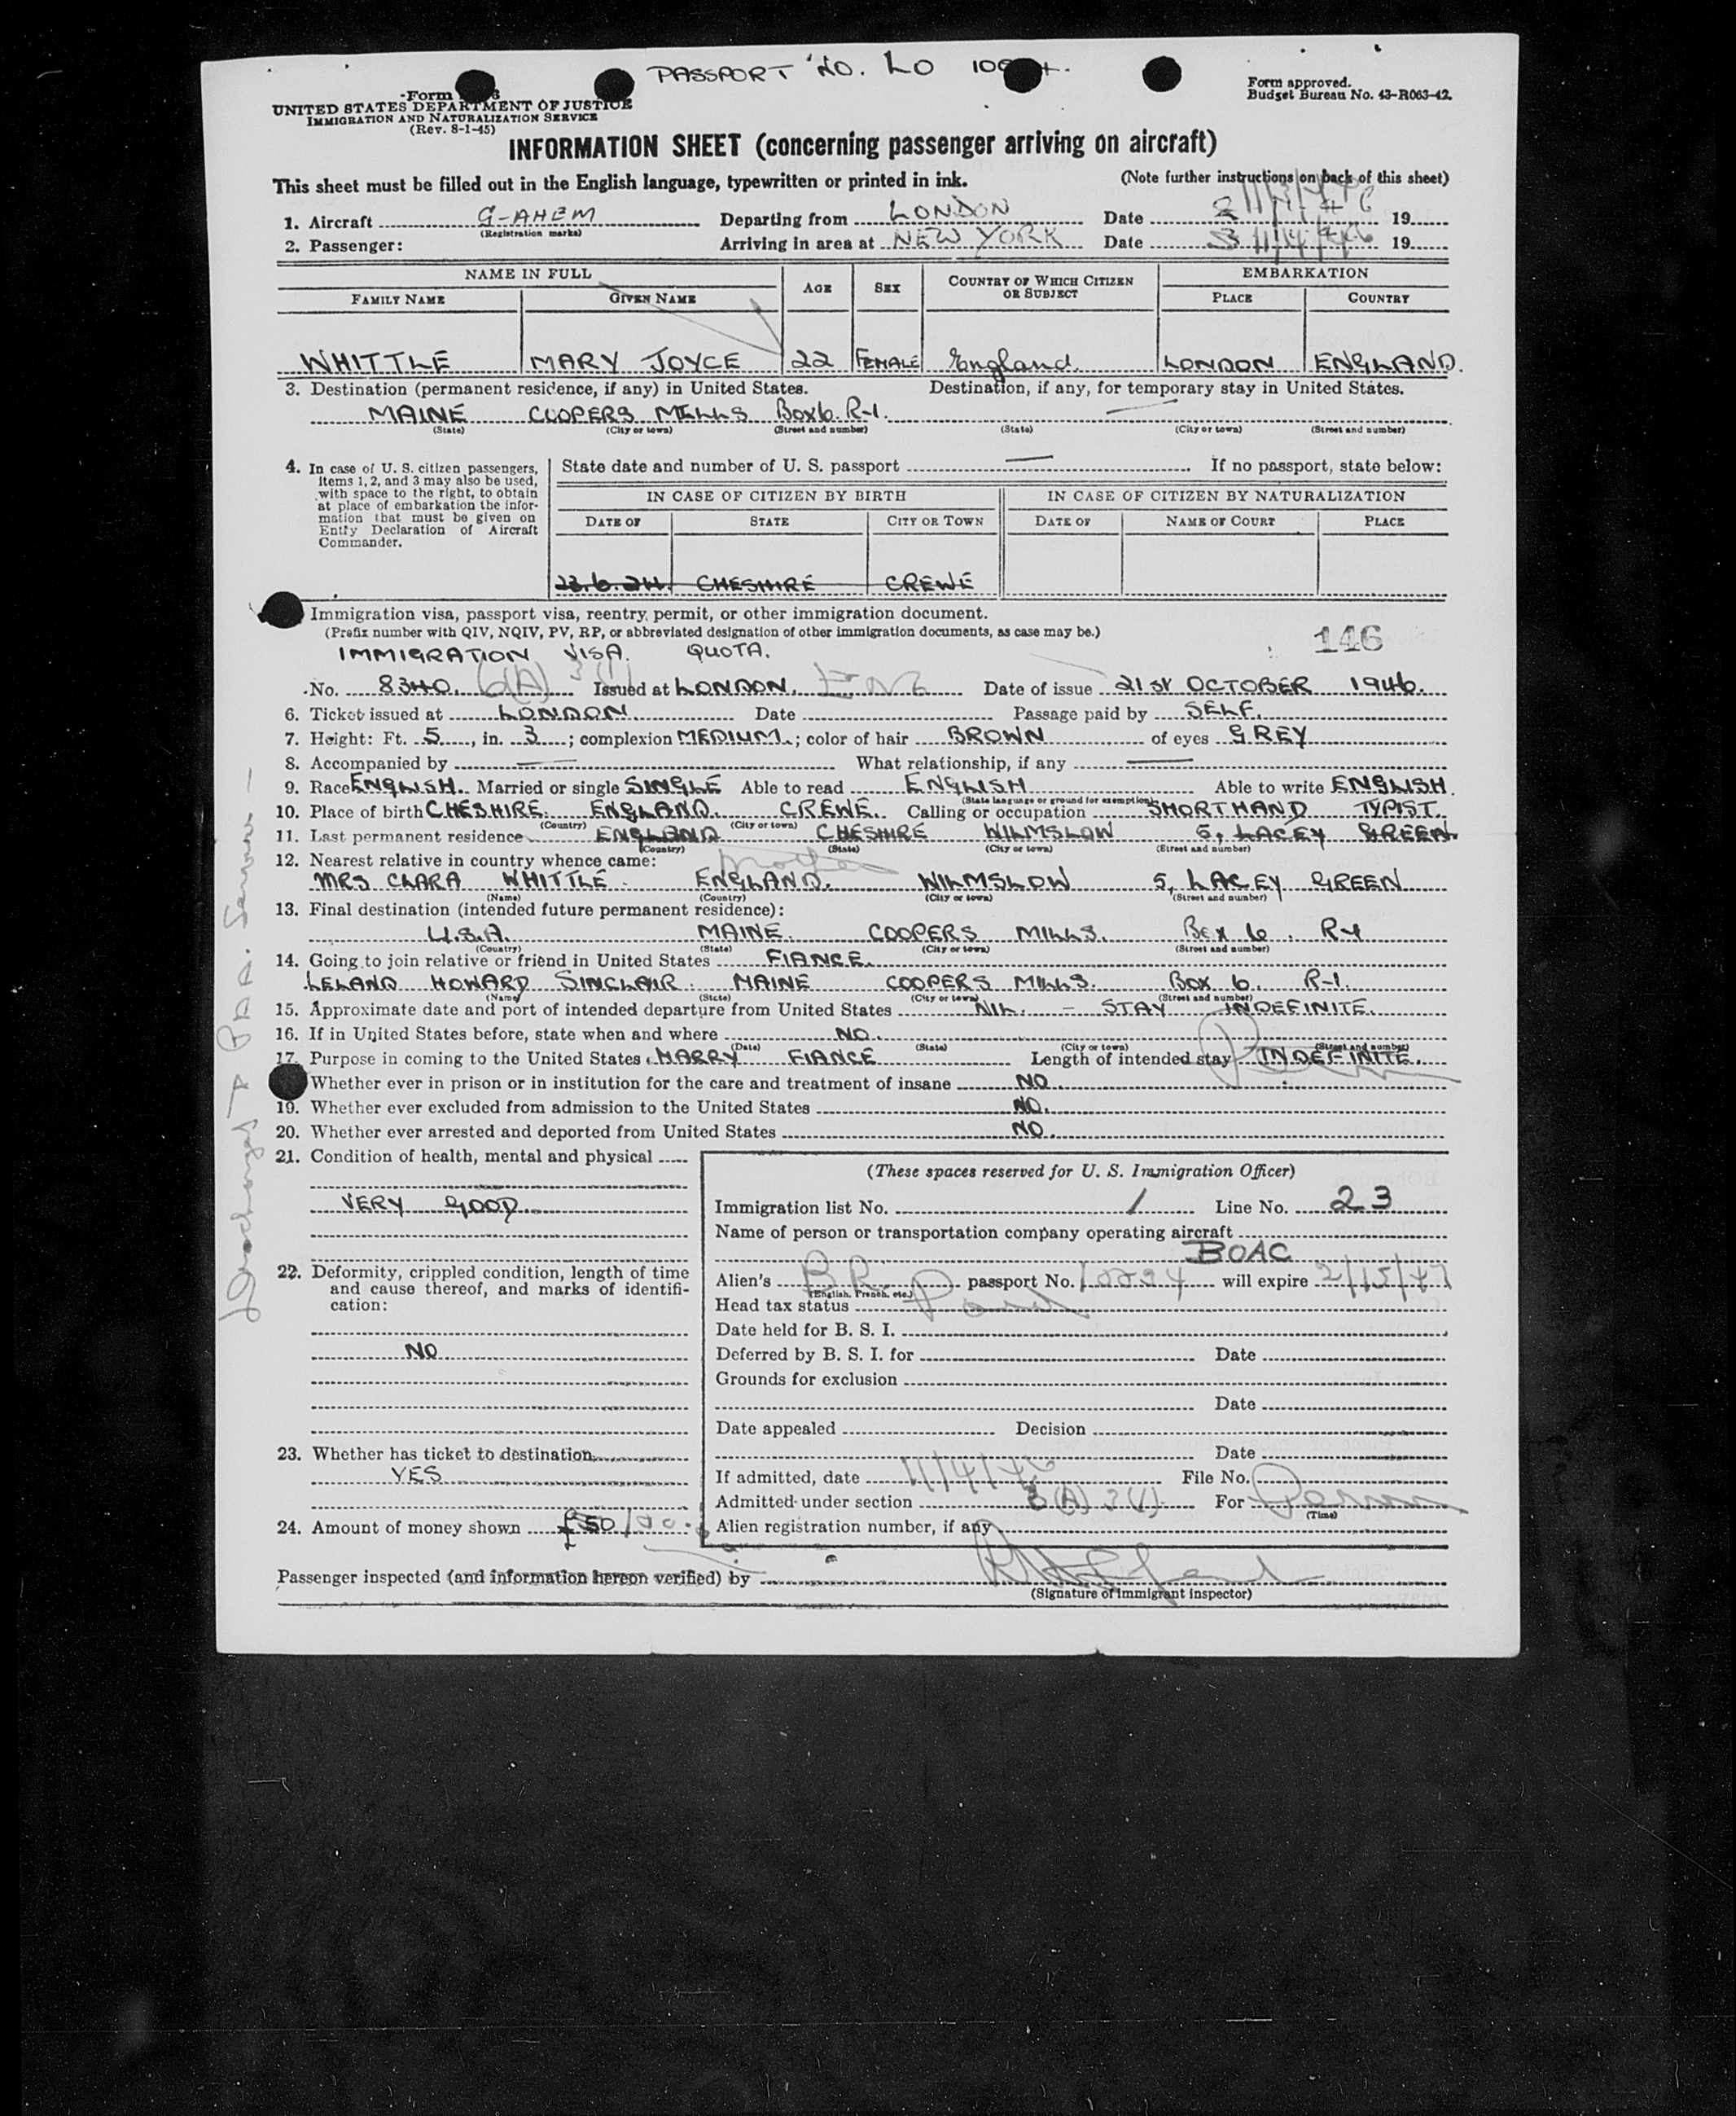 PASSPORT NO. LO
Form approved.
Budget Bureau No. 43-R063-42.
Form
UNITED STATES DEPARTMENT OF JUSTICE
IMMIGRATION AND NATURALIZATION SERVICE
(Rev. 8-1-45)
INFORMATION SHEET (concerning passenger arriving on aircraft)
This sheet must be filled out in the English language, typewritten or printed in ink. (Note further instructions on back of this sheet)
1. Aircraft G-AHEM Departing from LONDON Date 19
(Registration marks)
2. Passenger: Arriving in area at NEW YORK Date 19
NAME IN FULL AGE SEX COUNTRY OF WHICH CITIZEN OR SUBJECT EMBARKATION
FAMILY NAME GIVEN NAME PLACE COUNTRY
WHITTLE MARY JOYCE 22 FEMALE England LONDON ENGLAND.
3. Destination (permanent residence, if any) in United States. Destination, if any, for temporary stay in United States.
MAINE COOPERS MILLS Box 6. R-1. —
(State) (City or town) (Street and number) (State) (City or town) (Street and number)
4. In case of U. S. citizen passengers, items 1, 2, and 3 may also be used, with space to the right, to obtain at place of embarkation the information that must be given on Entry Declaration of Aircraft Commander.
State date and number of U. S. passport — If no passport, state below:
IN CASE OF CITIZEN BY BIRTH IN CASE OF CITIZEN BY NATURALIZATION
DATE OF STATE CITY OR TOWN DATE OF NAME OF COURT PLACE
23.6.24. CHESHIRE CREWE
Immigration visa, passport visa, reentry permit, or other immigration document.
(Prefix number with QIV, NQIV, PV, RP, or abbreviated designation of other immigration documents, as case may be.)
146
IMMIGRATION VISA. QUOTA.
No. 8340. Issued at LONDON. Date of issue 21ST OCTOBER 1946.
6. Ticket issued at LONDON. Date Passage paid by SELF.
7. Height: Ft. 5, in. 3; complexion MEDIUM.; color of hair BROWN of eyes GREY
8. Accompanied by — What relationship, if any —
9. Race ENGLISH. Married or single SINGLE Able to read ENGLISH Able to write ENGLISH.
(State language or ground for exemption)
10. Place of birth CHESHIRE. ENGLAND. CREWE. Calling or occupation SHORTHAND TYPIST.
(Country) (City or town)
11. Last permanent residence ENGLAND CHESHIRE WILMSLOW 5, LACEY GREEN.
(Country) (State) (City or town) (Street and number)
12. Nearest relative in country whence came: mother
MRS CLARA WHITTLE. ENGLAND. WILMSLOW 5, LACEY GREEN
(Name) (Country) (City or town) (Street and number)
13. Final destination (intended future permanent residence):
U.S.A. MAINE. COOPERS MILLS. Box 6. R-1
(Country) (State) (City or town) (Street and number)
14. Going to join relative or friend in United States FIANCE.
LELAND HOWARD SINCLAIR. MAINE COOPERS MILLS. Box 6. R-1.
(Name) (State) (City or town) (Street and number)
15. Approximate date and port of intended departure from United States NIL. - STAY INDEFINITE.
16. If in United States before, state when and where NO.
(Date) (State) (City or town) (Street and number)
17. Purpose in coming to the United States MARRY FIANCE Length of intended stay INDEFINITE.
Whether ever in prison or in institution for the care and treatment of insane NO.
19. Whether ever excluded from admission to the United States NO.
20. Whether ever arrested and deported from United States NO.
21. Condition of health, mental and physical
VERY GOOD.
22. Deformity, crippled condition, length of time and cause thereof, and marks of identification:
NO
23. Whether has ticket to destination
YES
24. Amount of money shown £50
(These spaces reserved for U. S. Immigration Officer)
Immigration list No. 1 Line No. 23
Name of person or transportation company operating aircraft
BOAC
Alien's BR. passport No. 10294 will expire 2/15/47
(English, French, etc.)
Head tax status Paid
Date held for B. S. I.
Deferred by B. S. I. for Date
Grounds for exclusion
Date
Date appealed Decision
Date
If admitted, date 11/4/46 File No.
Admitted under section 6(A) 3(1). For
(Time)
Alien registration number, if any
Passenger inspected (and information hereon verified) by
(Signature of immigrant inspector)